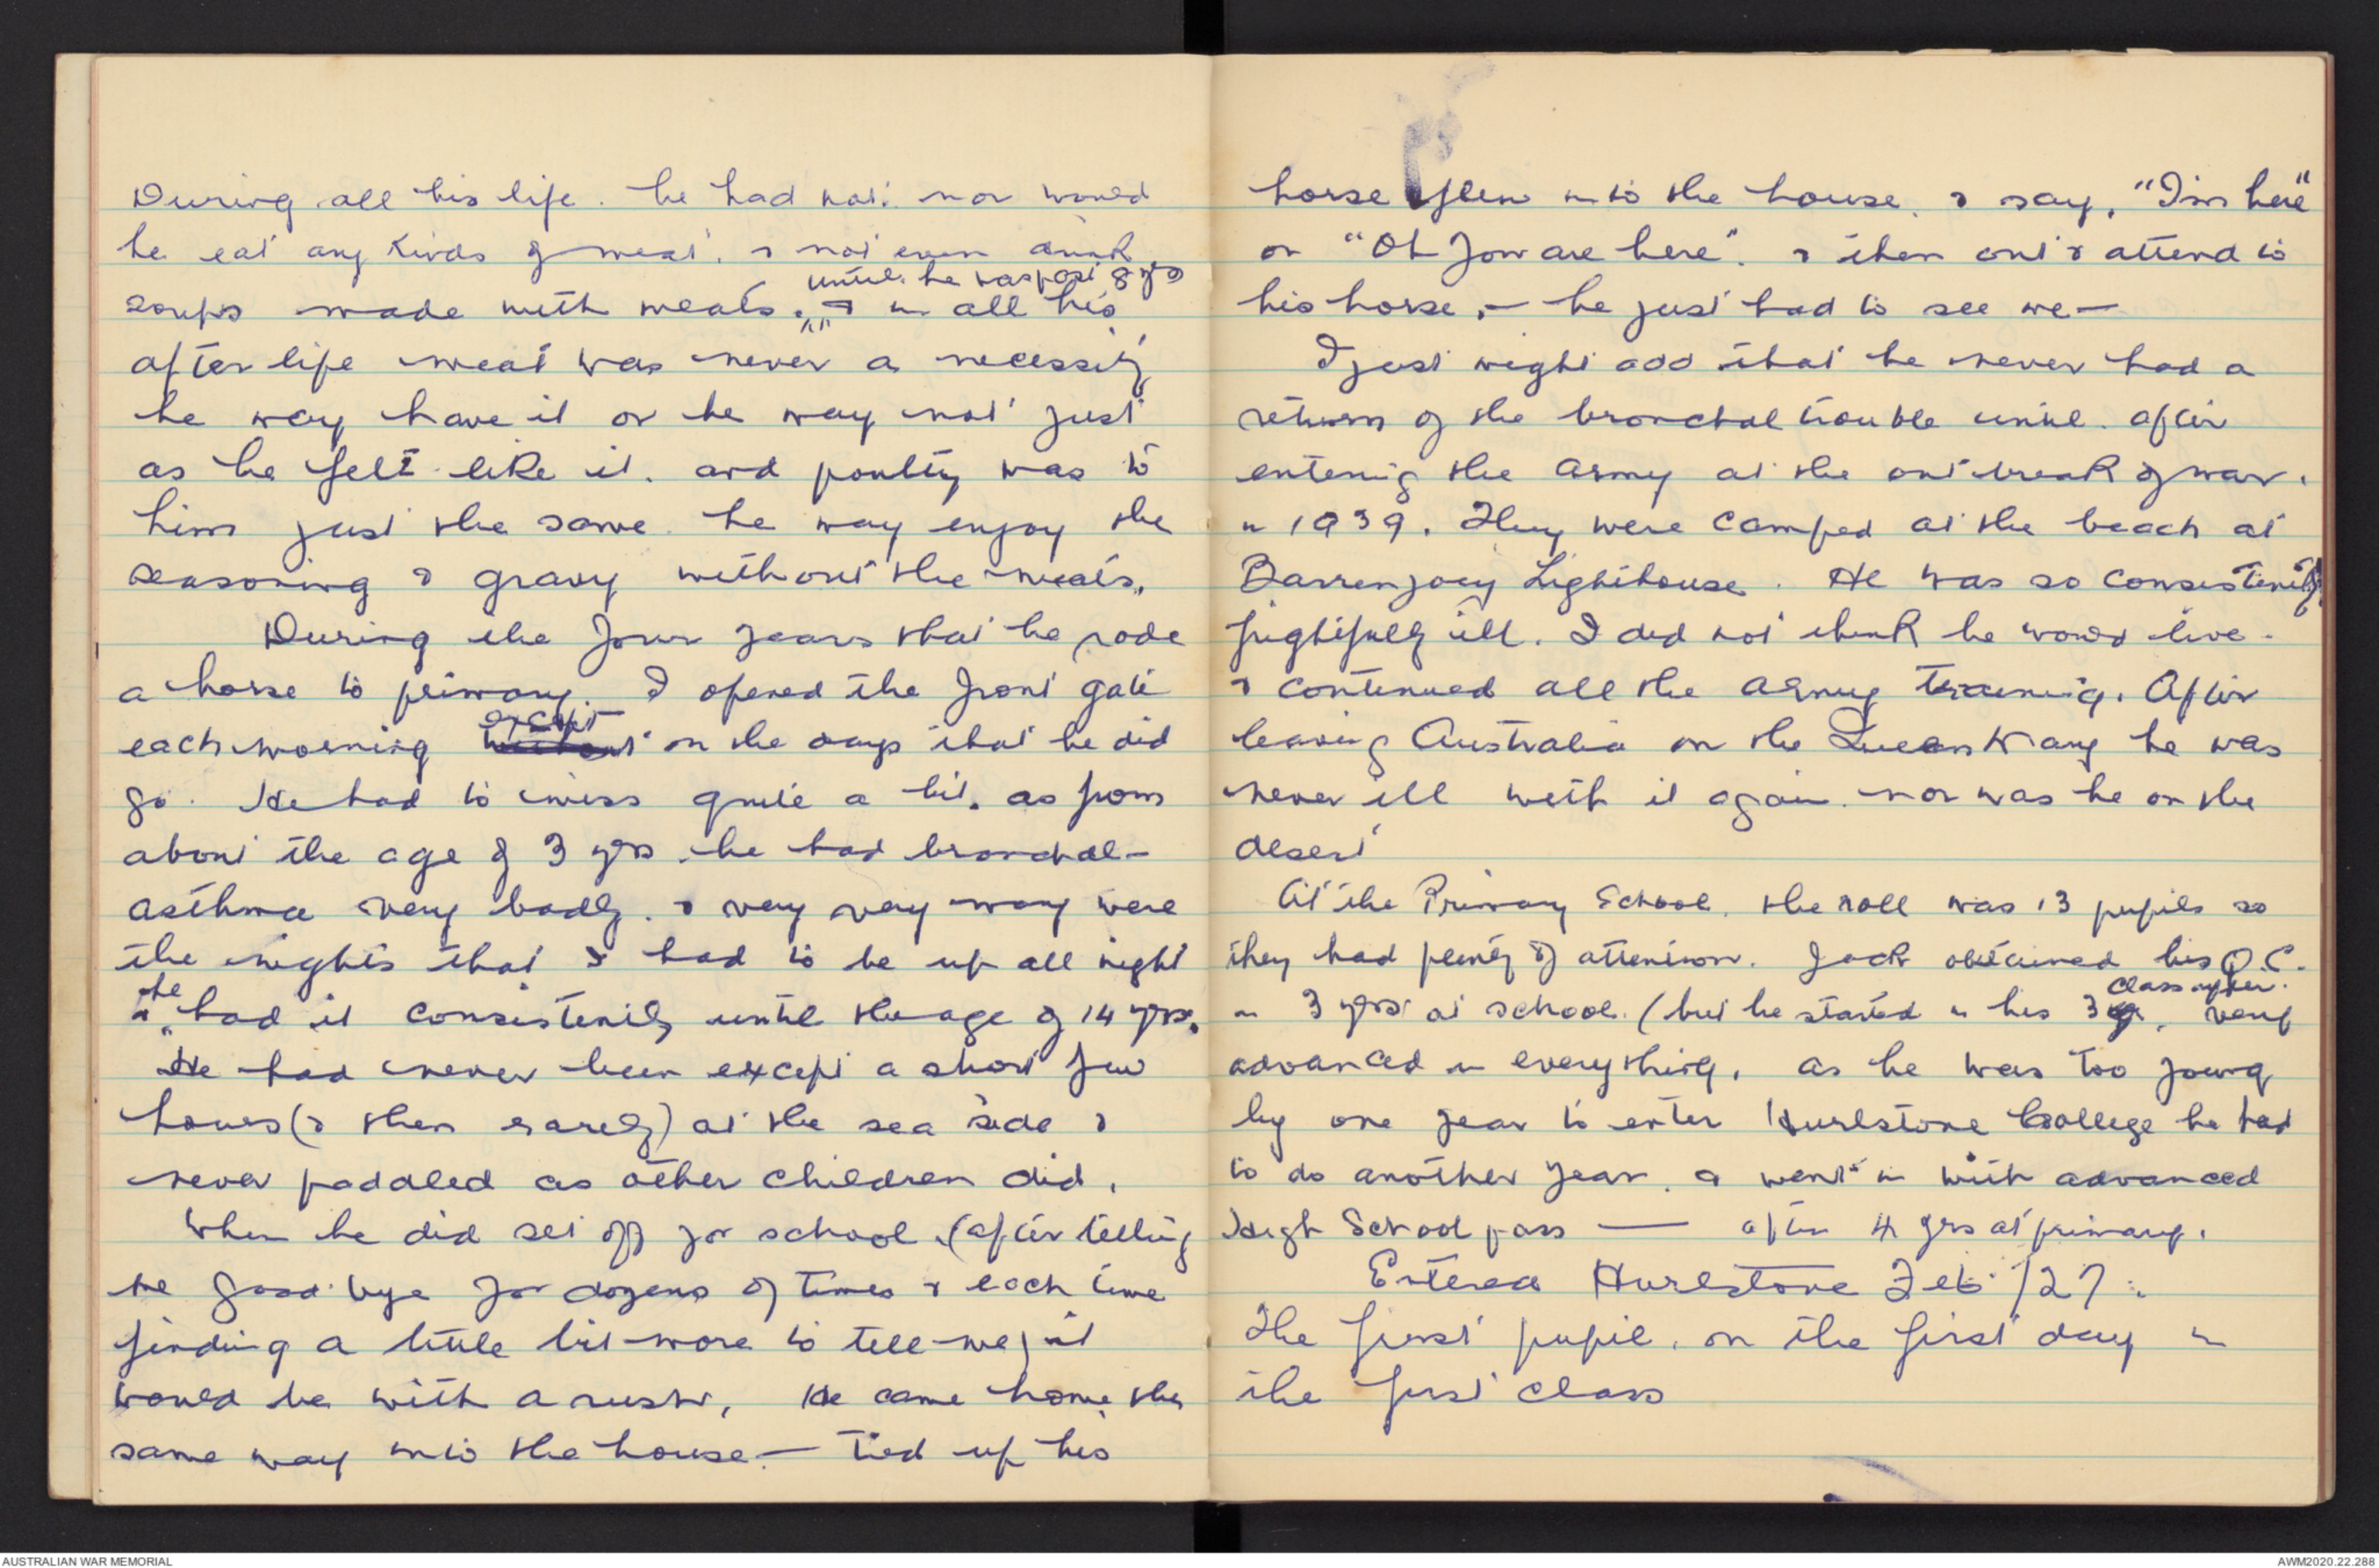 During all his life. he had not. nor would
he eat any kinds of meat. & not even drink
until he was past 8 yrs
soups made with meats. & in all his
after life meat was never a necessity
he may have it or he may not just
as he felt like it. and poultry was to
him just the same. he may enjoy the
seasoning & gravy without the meats.
During the four years that he rode
a horse to primary I opened the front gate
except
each morning without on the days that he did
go. He had to miss quite a bit. as from
about the age of 3 yrs he had bronchal-
asthma very badly. & very very many were
the nights that I had to be up all night
he
& had it consistently until the age of 14 yrs.
He had never been except a short few
hours (& then rarely) at the sea side &
never paddled as other children did.
When he did set off for school (after telling
me good-bye for dozens of times & each time
finding a little bit more to tell me) it
would be with a rush, He came home the
same way into the house - tied up his
horse flew into the house. & say, "I'm here"
or "Oh you are here". & then out & attend to
his horse, - he just had to see me -
I just might add that he never had a
return of the bronchal trouble until after
entering the army at the outbreak of war.
in 1939. They were camped at the beach at
Barrenjoey Lighthouse. He was so consistently
frightfully ill. I did not think he would live -
& continued all the army training. After
leaving Australia on the Queen Mary he was
never ill with it again. nor was he on the
desert
At the Primary School. the roll was 13 pupils so
they had plenty of attention. Jack obtained his Q.C.
class after.
in 3 yrs at school. (but he started in his 3 very
advanced in everything, as he was too young
by one year to enter Hurlstone College he had
to do another year. & went in with advanced
High School pass — after 4 yrs at primary.
Entered Hurlstone Feb /27.
The first pupil. on the first day in
the first class
AUSTRALIAN WAR MEMORIAL
AWM2020.22.288